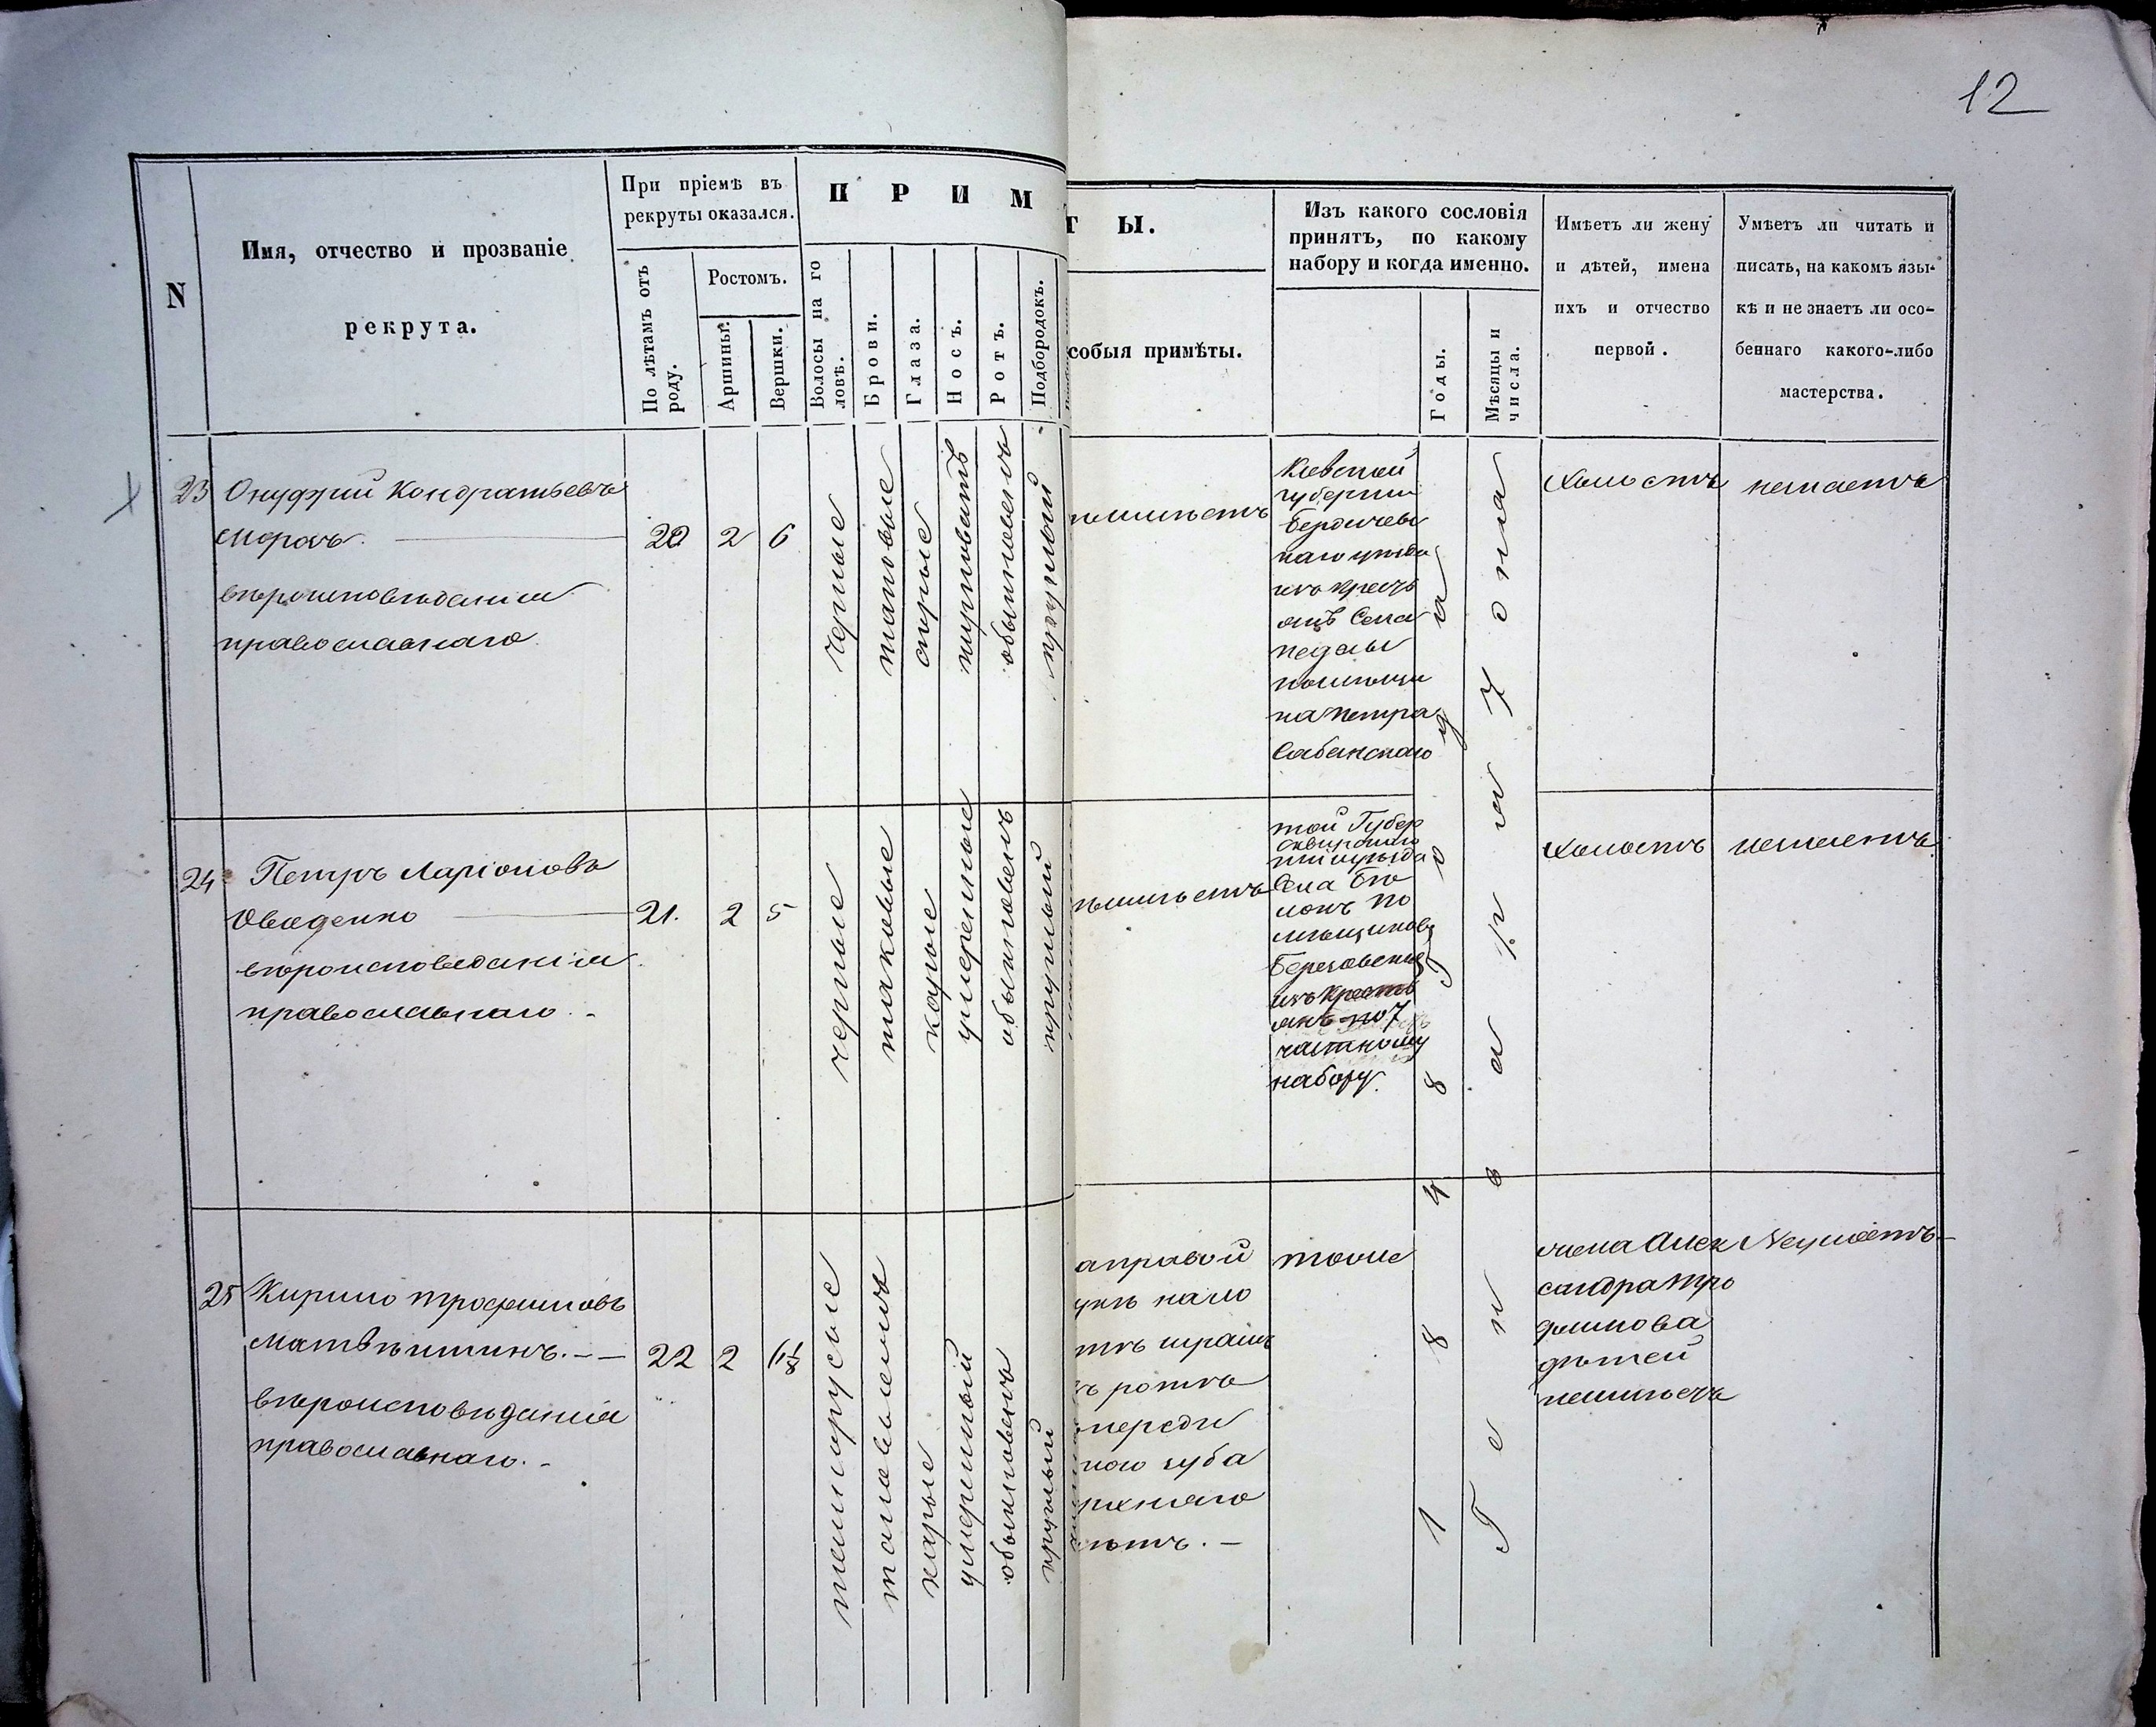 12
N
Имя, отчество и прозваніе
рекрута.
При пріемѣ въ
рекруты оказался.
По лѣтамъ отъ
роду.
Ростомъ.
Аршины.
Вершки.
П Р И М
Волосы на го
ловѣ.
Брови.
Глаза.
Носъ.
Ротъ.
Подбородокъ.
Т Ы.
собыя примѣты.
Изъ какого сословія
принятъ, по какому
набору и когда именно.
Годы.
Мѣсяцы и
числа.
Имѣетъ ли жену
и дѣтей, имена
ихъ и отчество
первой.
Умѣетъ ли читать и
писать, на какомъ язы-
кѣ и не знаетъ ли осо-
беннаго какого-либо
мастерства.
23
Онуфрій Кондратьевъ
Морозъ.
вѣроисповѣданія
православнаго.
22
2
6
черные
таковые
сѣрые
обыкновенъ
Кіевской
губерніи
Бердичевс
каго уѣзда
изъ крестъ
янъ Села
помѣщи
ка Петра
Сабанскаго
Холостъ
незнаетъ
24
Петръ Ларіоновъ
вѣроисповѣданія
православнаго.-
21.
2
5
черные
таковые
карые
умеренные
обыкновенъ
круглый
той Губер
Сквирскаго
Села
помѣщиковъ
изъ крестъ
янъ по 7
частному
набору.
Холостъ
незнаетъ
25
Кирило Трофимовъ
вѣроисповѣданія
православнаго.-
22
2
6⅛
темнорусые
карые
умеренный
обыкновенъ
круглый
а правой
тоже
переди
ного зуба
рхняго
ѣтъ.-
184 8 Года
Генваря 7 дня
жена Алек
сандра Тро
фимова
дѣтей
неимѣетъ
Неумѣетъ-